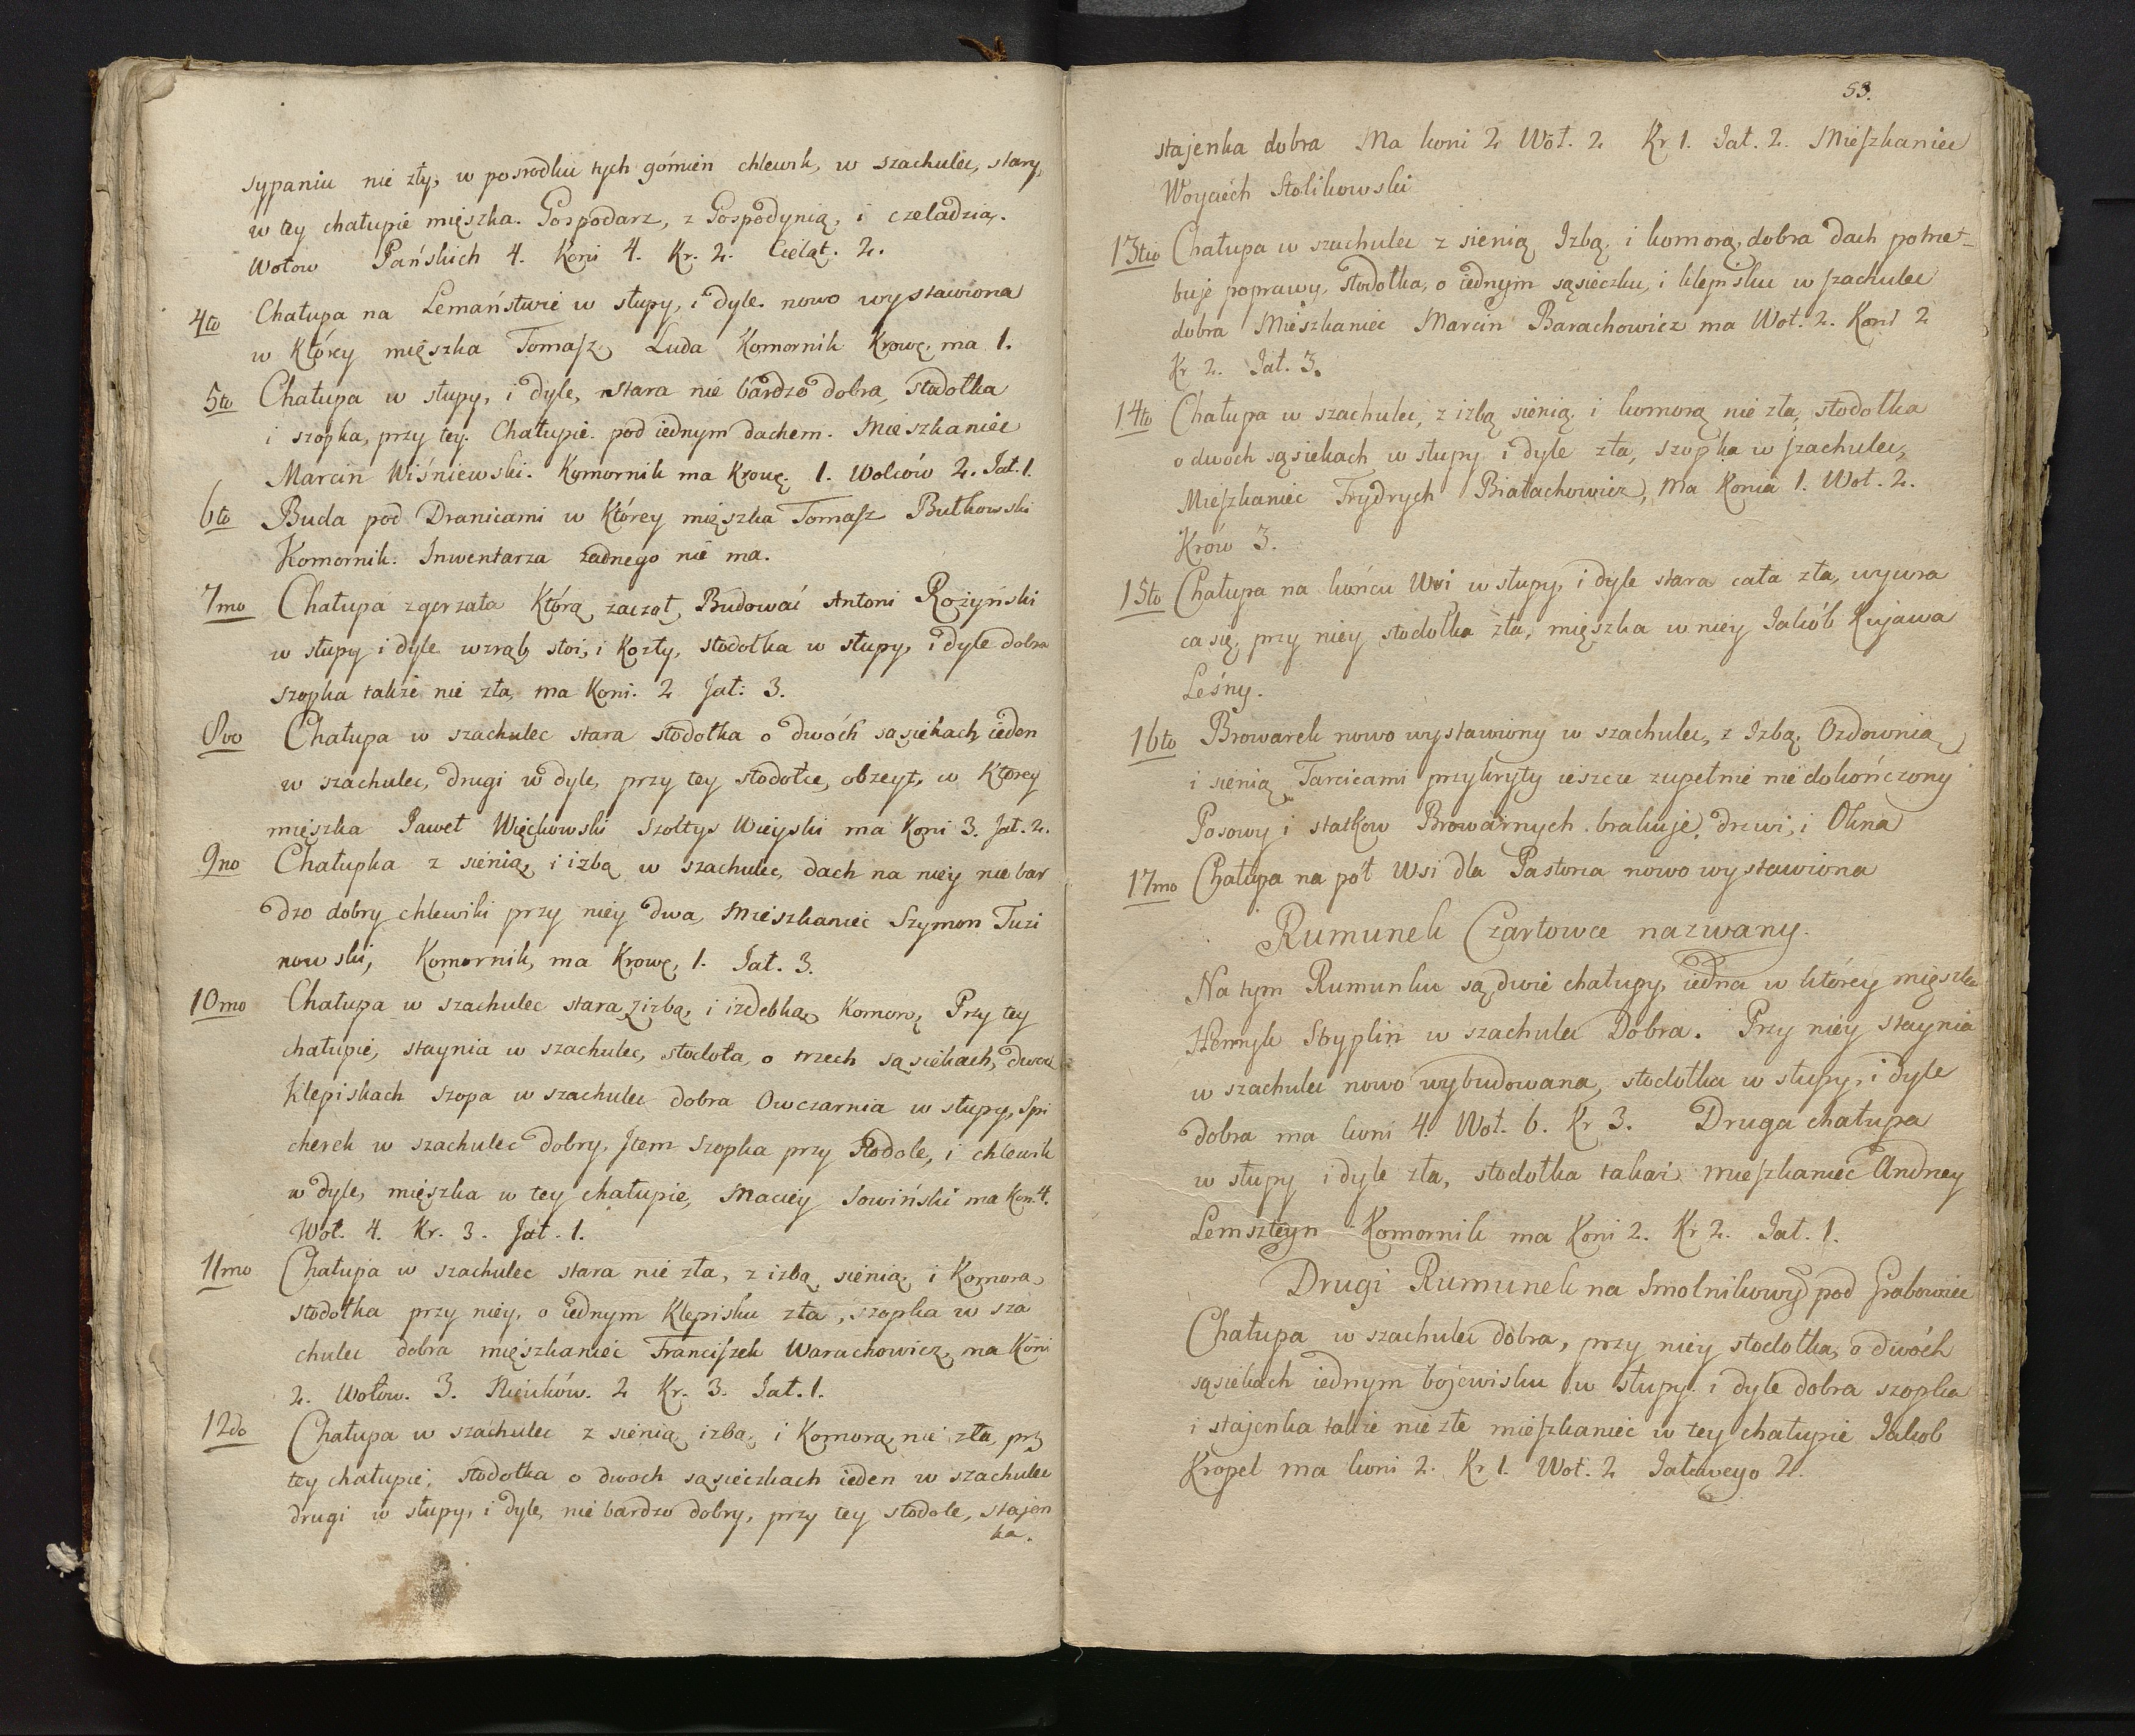 sypaniu nie zły, w posrodku tych gómien chlewik, w szachulec, stary,
w tey chałupie mięszka. Gospodarz, z Gospodynią, i czeladzią.
Wołow Pańskich 4. Koni 4. Kr. 2. Cieląt. 2.
4to Chałupa na Lemaństwie w słupy, i dyle. nowo wystawiona
w Którey mięszka Tomasz Luda Komornik Krowę. ma 1.
5to Chałupa w słupy, i dyle, stara nie bardzo dobra, stodołka
i szopka, przy tey. Chałupie. pod iednym dachem. Mieszkaniec
Marcin Wiśniewski. Komornik ma Krowę. 1. Wolców 2. Jał. 1.
6to Buda pod Dranicami w Którey mięszka Tomasz Bułkowski
Komornik. Inwentarza żadnego nie ma.
7mo Chałupa zgorzała Którą zaczął Budować Antoni Rożyński
w słupy i dyle wzrąb stoi, i Kozły, stodołka w słupy, i dyle dobra
szopka także nie zła, ma Koni. 2 Jał: 3.
8vo Chałupa w szachulec stara stodołka o dwóch sąsiekach, ieden
w szachulec, drugi w dyle, przy tey stodołce, obzeyt, w Którey
mięszka Paweł Więckowski Szołtys Wieyski ma Koni 3. Jał. 2.
9no Chałupka z sienią, i izbą w szachulec, dach na niey nie bar
dzo dobry chlewiki przy niey dwa, Mieszkaniec Szymon Tuzi
nowski, Komornik, ma Krowę, 1. Jał. 3.
10mo Chałupa w szachulec stara z izbą, i izdebką Komorą Przy tey
chałupie, staynia w szachulec, stodoła, o trzech sąsiekach, dwoch
Klepiskach szopa w szachulec dobra Owczarnia w słupy, Spi
cherek w szachulec dobry, Jtem Szopka przy Stodole, i chlewik
w dyle, mięszka w tey chałupie, Maciey Sowiński ma Kon. 4.
Woł. 4. Kr. 3. Jał. 1.
11mo Chałupa w szachulec stara nie zła, z izbą sienią, i Komorą,
stodołka przy niey, o iednym Klepisku zła, szopka w sza
chulec dobra mięszkaniec Franciszek Warachowicz, ma Koni
2. Wołow. 3. Nieuków. 2 Kr. 3. Jał. 1.
12do Chałupa w szachulec z sienią, izbą, i Komorą, nie zła, prz
tey chałupie, stodołka o dwoch sąsieczkach ieden w szachulec
drugi w słupy, i dyle, nie bardzo dobry, przy tey stodole, stajen
ka.
53.
stajenka dobra Ma koni 2 Woł. 2 Kr 1. Jał. 2. Mieszkaniec
Woyciech Stolikowski
13tio Chałupa w szachulec z sienią Izbą, i komorą, dobra dach potrze-
buje poprawy, stodołka, o iednym sąsieczku, i klepisku w szachulec
dobra Mieszkaniec Marcin Barachowicz ma Woł. 2. Koni 2
Kr 2. Jał. 3.
14to Chałupa w szachulec, z izbą sienią, i komorą nie zła, stodołka
o dwoch sąsiekach w słupy i dyle zła, szopka w szachulec,
Mieszkaniec Frydrych Białachowicz, Ma Konia 1. Woł. 2.
Krów 3.
15to Chałupa na końcu Wsi w słupy, i dyle stara cała zła, wywra
ca się, przy niey stodołka zła, mięszka w niey Jakób Kujawa
Leśny.
16to Browarek nowo wystawiony w szachulec, z Izbą. Ozdownią
i sienią Tarcicami przykryty ieszcze zupełnie nie dokończony
Posowy i statkow Browarnych brakuje, drzwi, i Okna
17mo Chałupa na pół Wsi dla Pastorza nowo wystawiona
Rumunek Czartowce nazwany.
Na tym Rumunku są dwie chałupy, iedna w którey mięszka
Henryk Stryplin w szachulec Dobra. Przy niey staynia
w szachulec nowo wybudowana, stodołka w słupy, i dyle
dobra ma koni 4. Woł. 6. Kr 3. Druga chałupa
w słupy i dyle zła, stodołka takaż mieszkaniec Andrzey
Lemszteyn Komornik ma Koni 2. Kr 2. Jał. 1.
Drugi Rumunek na Smolnikowy pod Grabowiec
Chałupa w szachulec dobra, przy niey stodołka, o dwóch
sąsiekach iednym bojewisku w słupy. i dyle dobra szopka
i stajenka także nie złe mieszkaniec w tey chałupie Jakob
Kropel ma koni 2. Kr 1. Woł. 2 Jałowego 2.